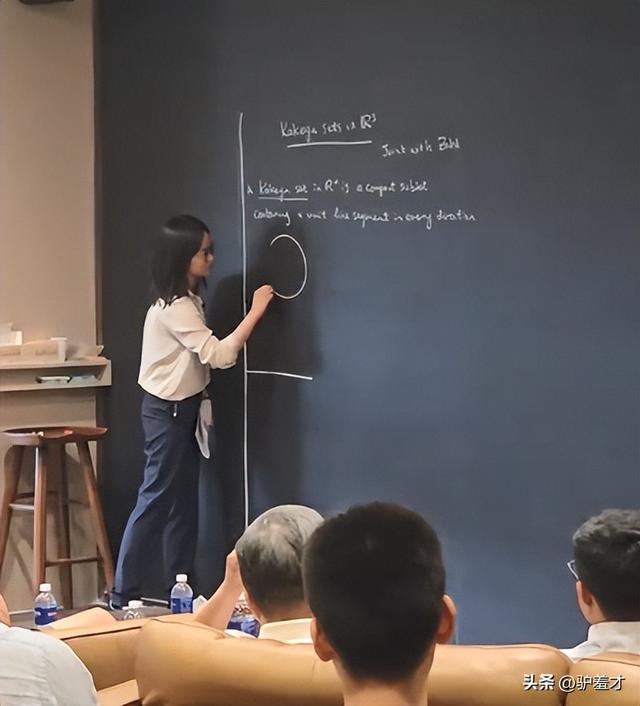 Kakeya sets in ℝ³
Joint with Zahl
A Kakeya set in ℝⁿ is a compact subset
containing a unit line segment in every direction
头条 @驴羞才